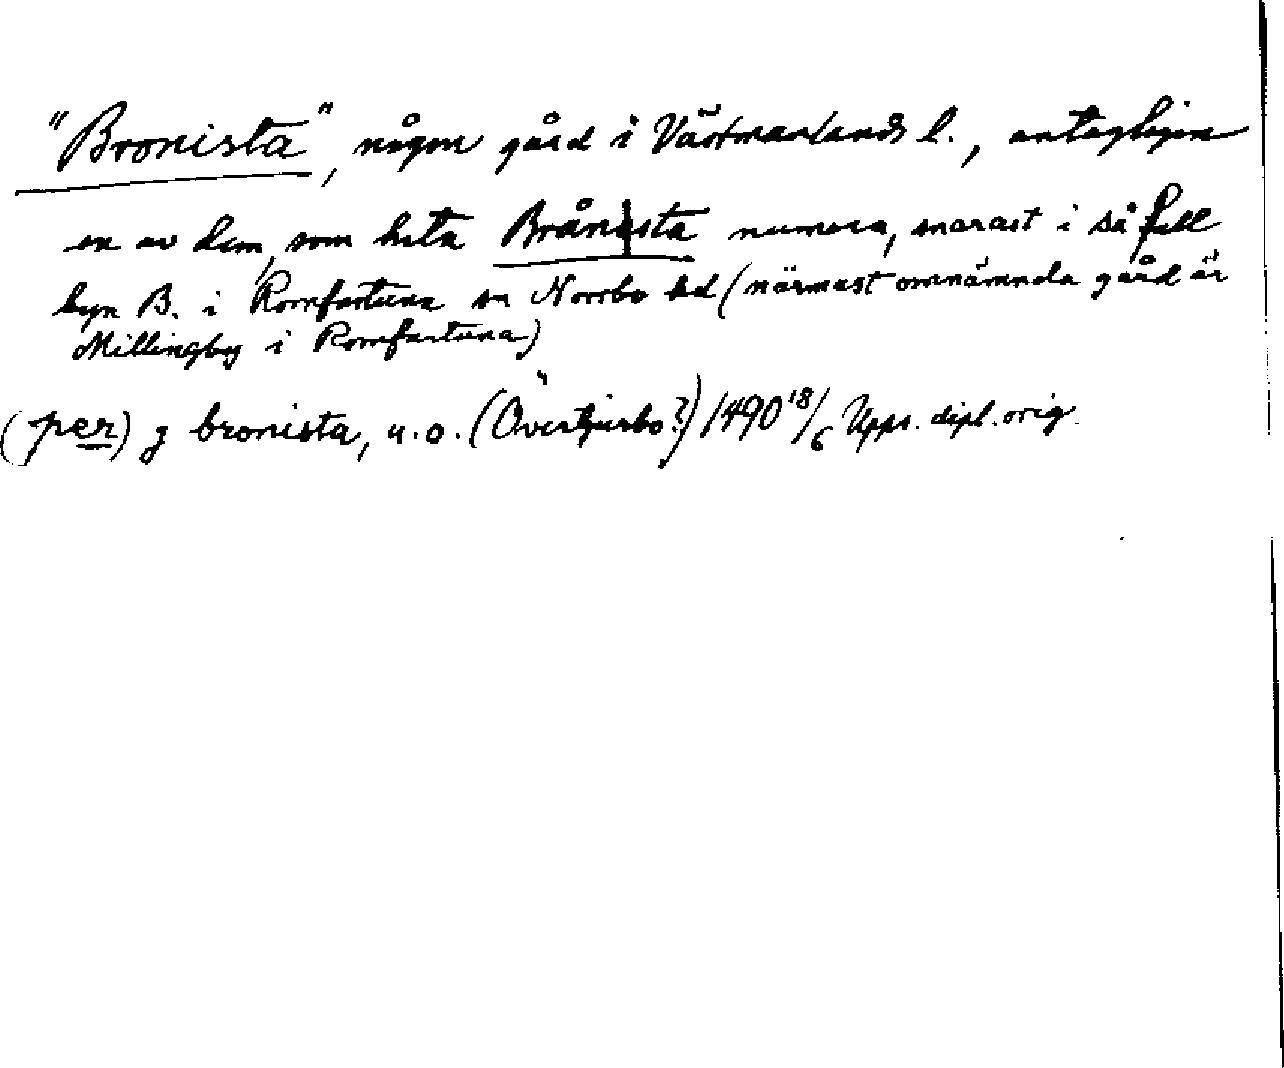 "Bronista", någon gård i Västmanlands l., antagligen
en av dem, som heta Brånsta numera, snarast i så fall
byn B. i Romfartuna sn Norrbo hd (närmast omnämnda gård är
Millingby i Romfartuna)
(per) j bronista, u.o. (Övertjurbo?) 1490 18/6 Upps. dipl. orig.